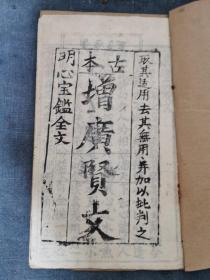 取其适用去其無用,并加以批判之
古本
增廣賢文
明心宝鑑全文